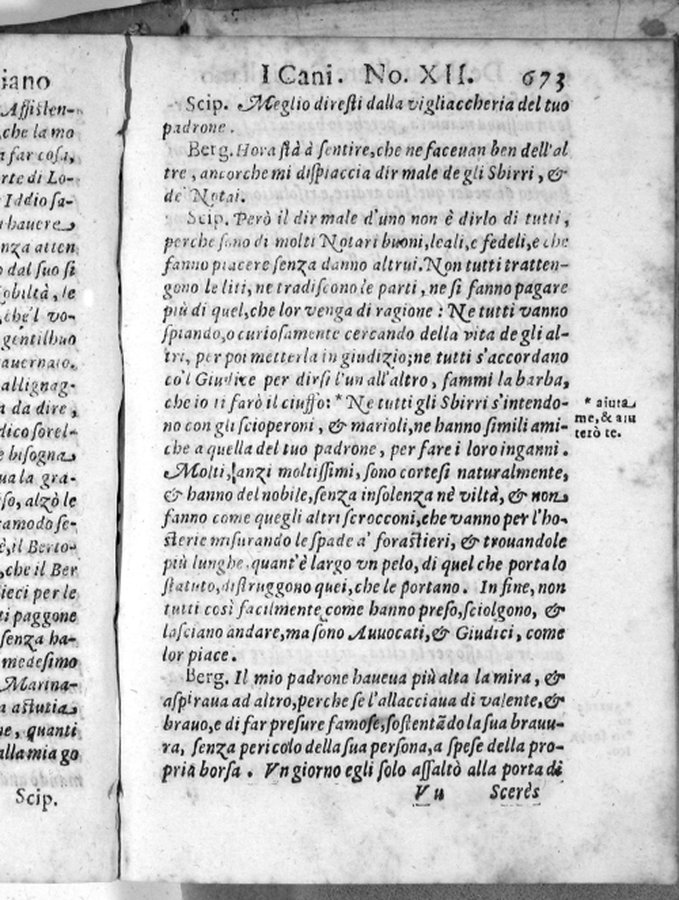 iano
Assisten-
,che la mo
a far cosa,
rte di Lo-
Iddio sa-
hauere
nza atten
o dal suo si
obiltà, le
,che'l vo-
gentilhuo
auernato.
allignag-
a da dire,
dico sorel-
e bisogna
ua la gra-
so, alzò le
ramodo se-
è, il Berto-
,che il Ber
dieci per le
ti paggone
senza ha-
medesimo
Marina-
a astutia
ne, quanti
alla mia go
Scip.
I Cani. No. XII. 673
Scip. Meglio diresti dalla vigliaccheria del tuo
padrone.
Berg. Hora stà à sentire, che ne faceuan ben dell'al
tre, ancorche mi dispiaccia dir male de gli Sbirri, &
de' Notai.
Scip. Però il dir male d'uno non è dirlo di tutti,
perche sono di molti Notari buoni, leali, e fedeli, e che
fanno piacere senza danno altrui. Non tutti tratten-
gono le liti, ne tradiscono le parti, ne si fanno pagare
più di quel, che lor venga di ragione: Ne tutti vanno
spiando, o curiosamente cercando della vita de gli al-
tri, per poi metterla in giudizio; ne tutti s'accordano
co'l Giudice per dirsi l'un all'altro, fammi la barba,
che io ti farò il ciuffo: * Ne tutti gli Sbirri s'intendo-
no con gli scioperoni, & marioli, ne hanno simili ami-
che a quella del tuo padrone, per fare i loro inganni.
Molti, anzi moltissimi, sono cortesi naturalmente,
& hanno del nobile, senza insolenza nè viltà, & non
fanno come quegli altri scrocconi, che vanno per l'ho-
sterie misurando le spade a' forastieri, & trouandole
più lunghe, quant'è largo vn pelo, di quel che porta lo
statuto, distruggono quei, che le portano. In fine, non
tutti così facilmente come hanno preso, sciolgono, &
lasciano andare, ma sono Auuocati, & Giudici, come
lor piace.
Berg. Il mio padrone haueua più alta la mira, &
aspiraua ad altro, perche se l'allacciaua di valente, &
brauo, e di far presure famose, sostentãdo la sua brauu-
ra, senza pericolo della sua persona, a spese della pro-
pria borsa. Vn giorno egli solo assaltò alla porta di
V u Scerès
* aiuta
me, & aiu
terò te.